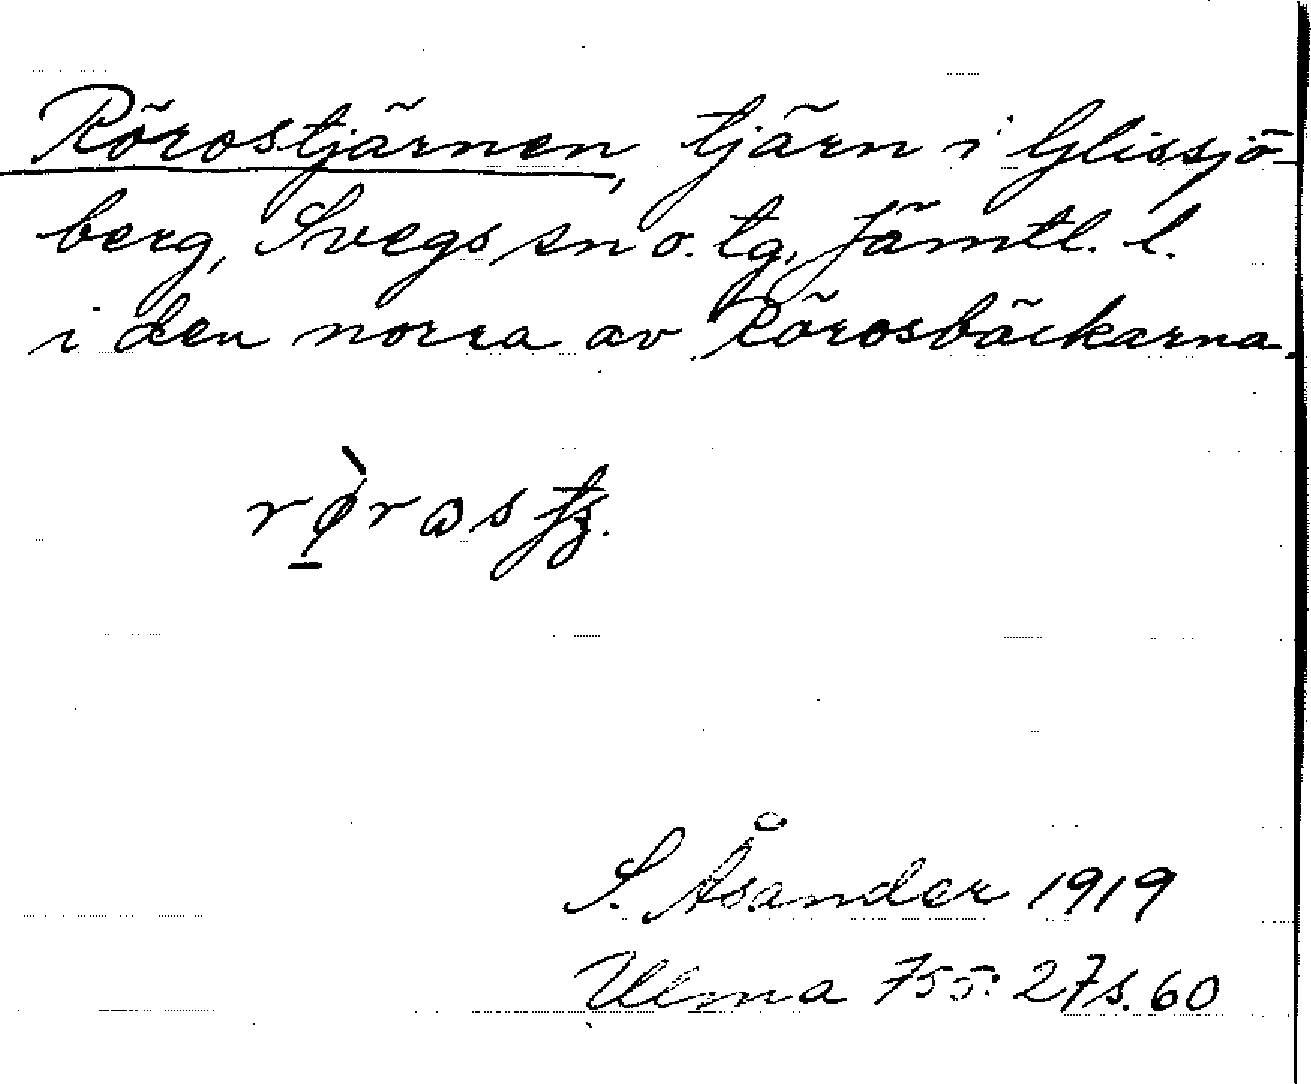 Rörostjärnen, tjärn i Glissjö-
berg, Svegs sn o. tg, Jämtl. l.
i den norra av Rörosbäckarna.
S. Åsander 1919
Ulma 755: 27 s. 60